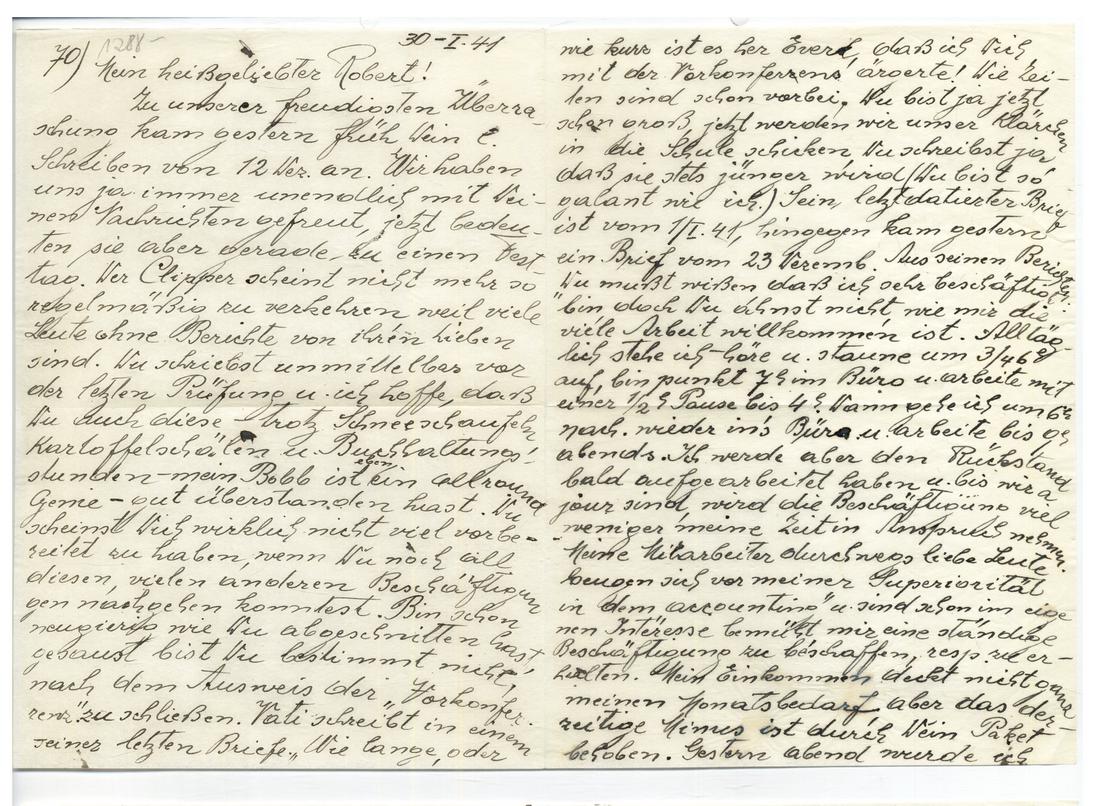 70) 1288-
30-I-41
Mein heißgeliebter Robert!
Zu unserer freudigsten Überra-
schung kam gestern früh Dein l.
Schreiben vom 12 Dez. an. Wir haben
uns ja immer unendlich mit Dei-
nen Nachrichten gefreut, jetzt bedeu-
ten sie aber gerade zu einen Fest-
tag. Der Clipper scheint nicht mehr so
regelmäßig zu verkehren weil viele
Leute ohne Berichte von ihren lieben
sind. Du schriebst unmittelbar vor
der letzten Prüfung u. ich hoffe, daß
Du auch diese trotz Schneeschaufeln
Kartoffelschälen u. Buchhaltungs-
stunden – mein Bobb ist eben ein allround
Genie – gut überstanden hast. Du
scheinst Dich wirklich nicht viel vorbe-
reitet zu haben, wenn Du noch all
diesen, vielen anderen Beschäftigun
gen nachgehen konntest. Bin schon
neugierig wie Du abgeschnitten hast,
gesaust bist Du bestimmt nicht,
nach dem Ausweis der „Vorkonfer-
renz" zu schließen. Vati schreibt in einem
seiner letzten Briefe „Wie lange, oder
wie kurz ist es her Everl, daß ich Dich
mit der Vorkonferrenz ärgerte! Die Zei-
ten sind schon vorbei. Du bist ja jetzt
schon groß, jetzt werden wir unser Klärchen
in die Schule schicken, Du schreibst ja
daß sie stets jünger wird (Du bist so
galant wie ich.) Sein, letztdatierter Brief
ist vom 1/I. 41, hingegen kam gestern
ein Brief vom 23 Dezemb. Aus seinen Berichten
Du mußt wißen daß ich sehr beschäftigt
bin doch Du ahnst nicht wie mir die
viele Arbeit willkommen ist. Alltäg-
lich stehe ich – höre u. staune um 3/4 6h
auf, bin punkt 7h im Büro u. arbeite mit
einer 1/2 h Pause bis 4h. Dann gehe ich um 6h
nach. wieder in's Büro u. arbeite bis 9h
abends. Ich werde aber den Rückstand
bald aufgearbeitet haben u. bis wir a
jour sind, wird die Beschäftigung viel
weniger meine Zeit in Anspruch nehmen.
Meine Mitarbeiter durchwegs liebe Leute
beugen sich vor meiner Superiorität
in dem „accounting" u. sind schon im eige
nen Intéresse bemüht mir eine ständige
Beschäftigung zu beschaffen, resp. zu er-
halten. Mein Einkommen deckt nicht ganz
meinen Monatsbedarf aber das der-
zeitige Minus ist durch Dein Paket
behoben. Gestern abend wurde ich